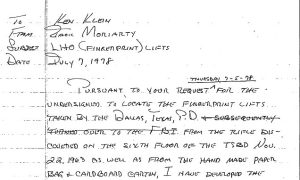 To Ken Klein
From Jack Moriarty
Subject LHO (Fingerprint) Lifts
Date July 7, 1978
THURSDAY 7-5-78
Pursuant to your request ^ for the
undersigned to locate the fingerprint lifts
taken by the Dallas, Texas, P.D. & subsequently
turned over to the F.B.I. from the rifle dis-
covered on the sixth floor of the TSBD Nov.
22, 1963 as well as from the hand made paper
bag & cardboard carton, I have developed the